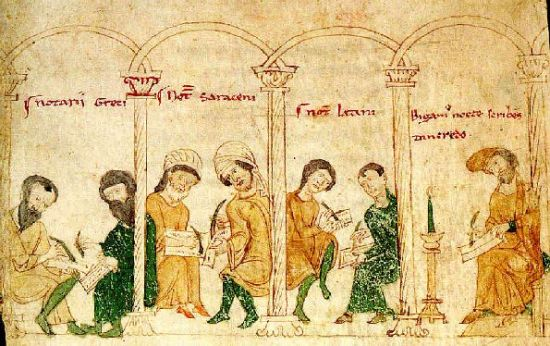 S notarii Greci
S Not̄ Saraceni
S not̄ Latini
Bigam᾽ nocte scribēs
Tancredo